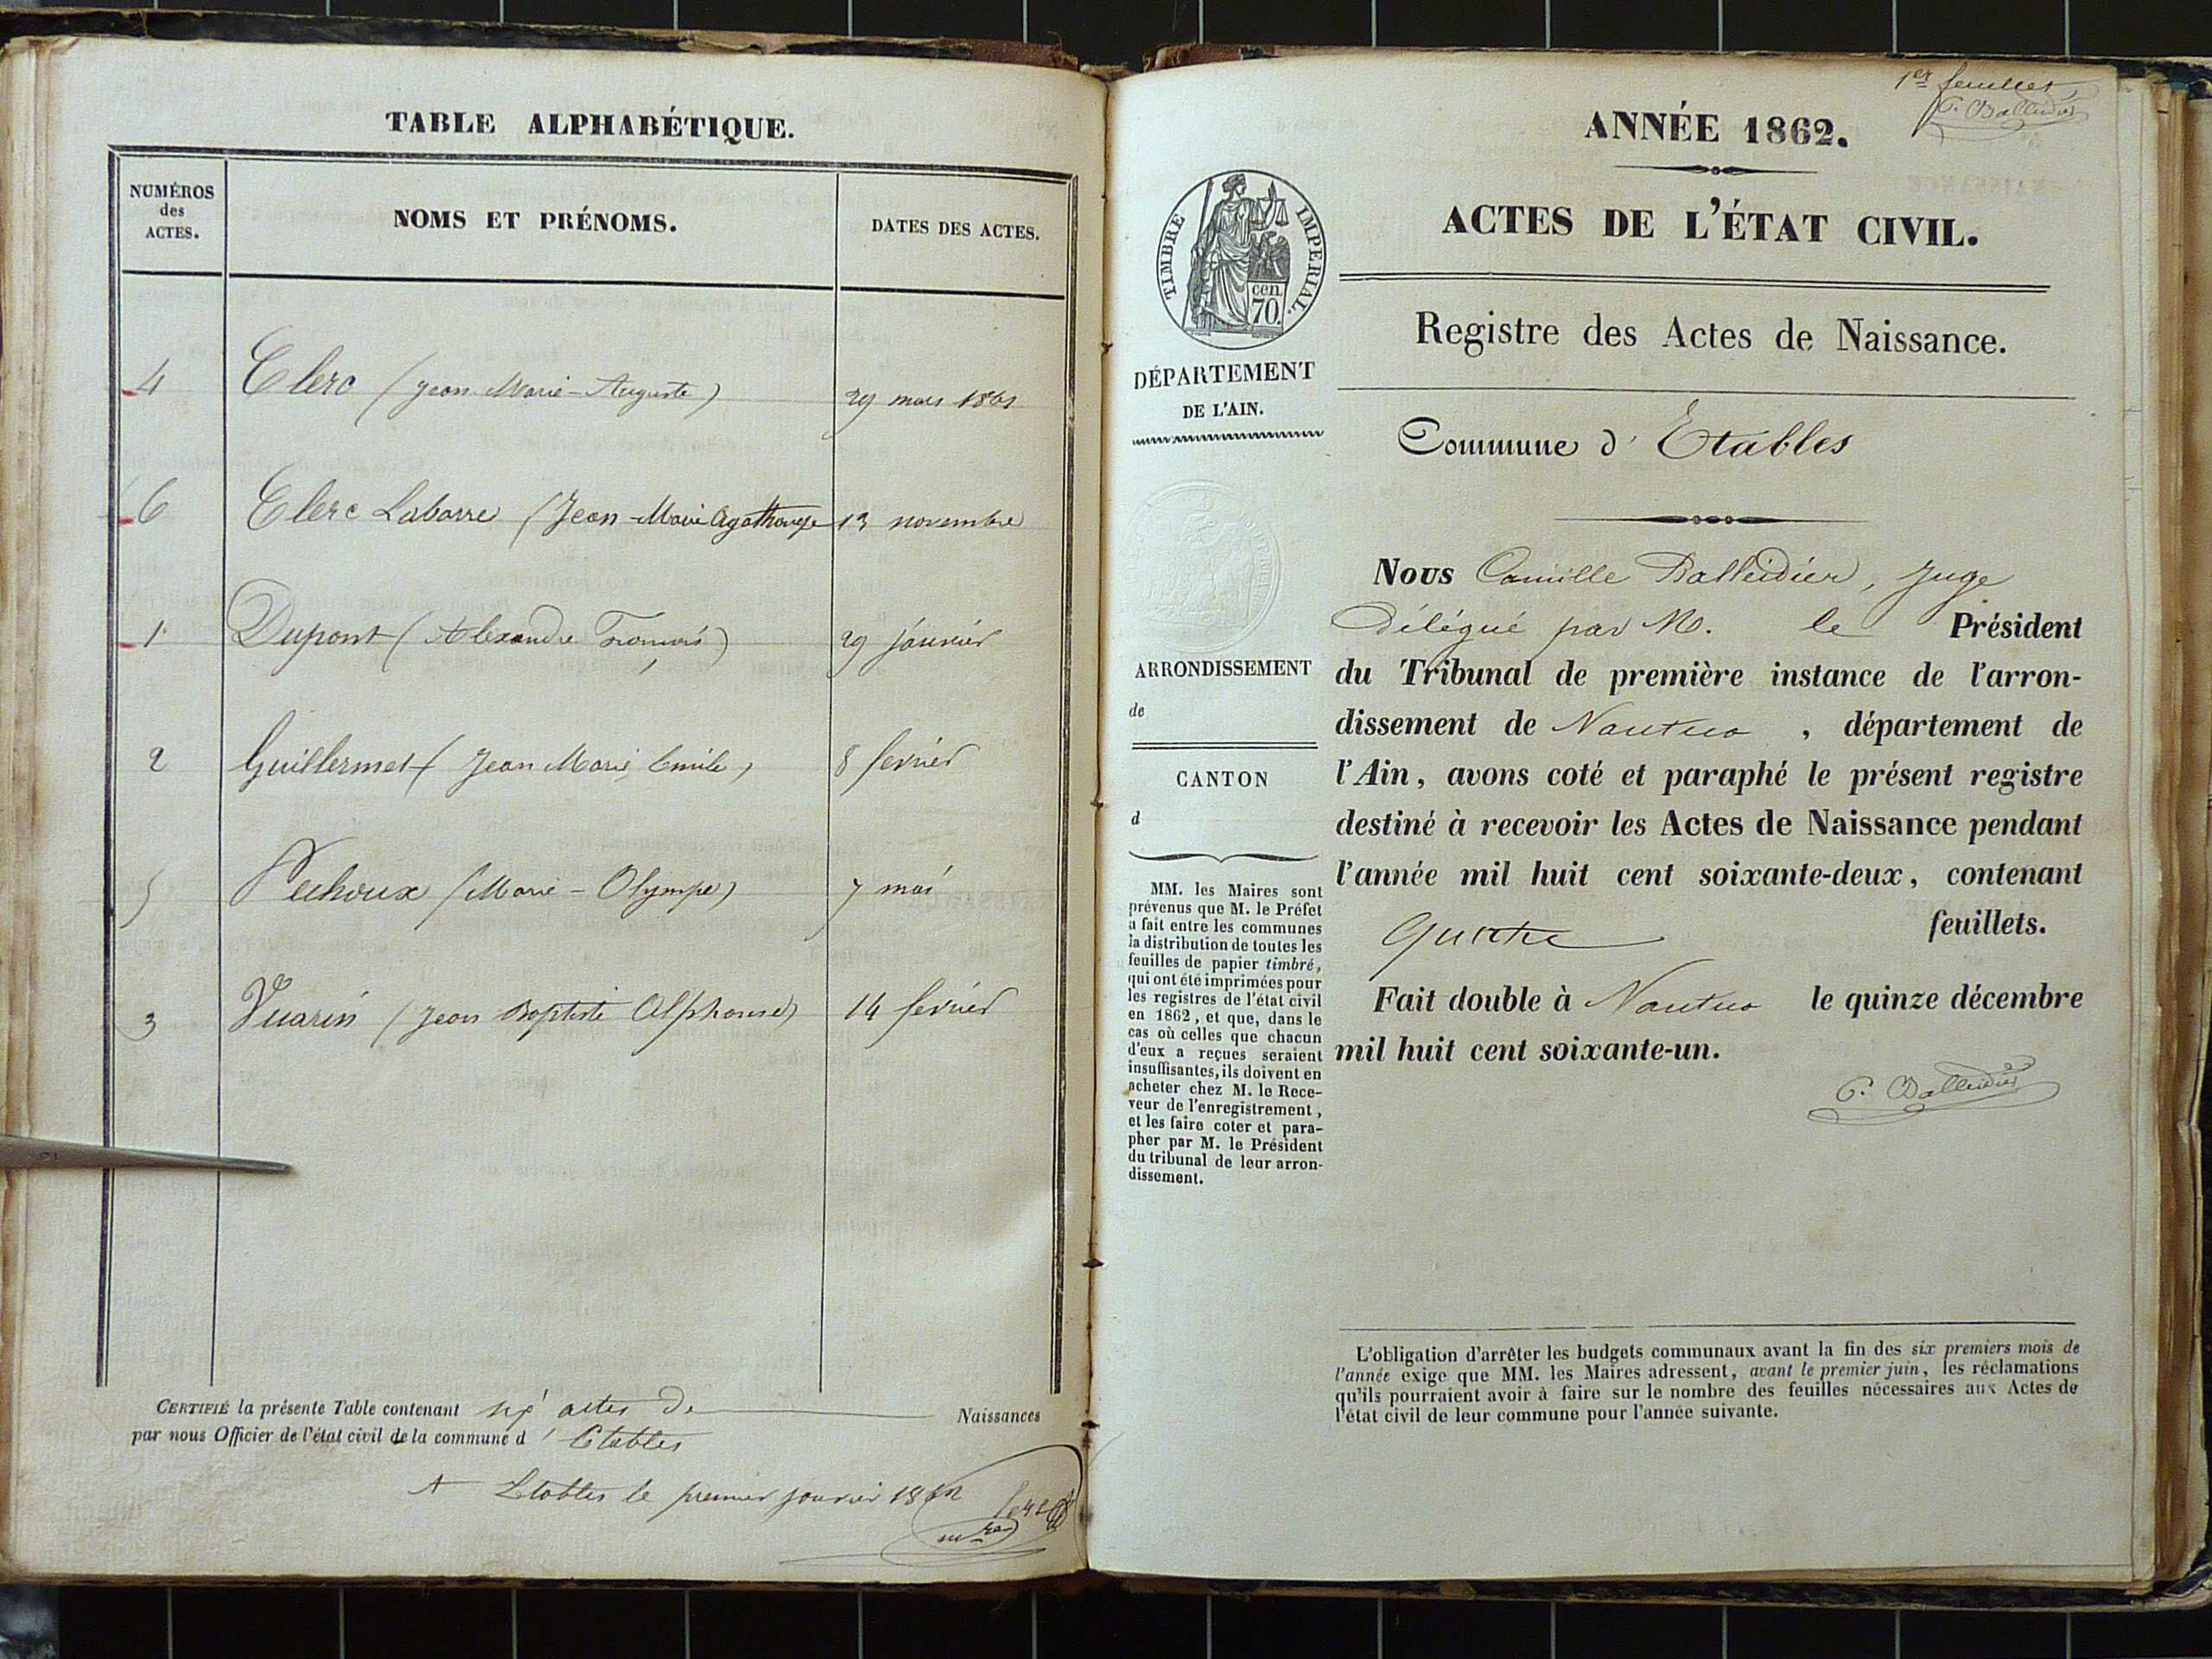 TABLE ALPHABÉTIQUE.
NUMÉROS des ACTES.
NOMS ET PRÉNOMS.
DATES DES ACTES.
4 Clerc (Jean Marie-Auguste) 29 mars 1861
6 Clerc Labarre (Jean-Marie Agathange 13 novembre
1 Dupont (Alexandre François) 29 janvier
2 Guillermet (Jean Marie Emile) 8 fevrier
5 Pechoux (Marie-Olympe) 7 mai
3 Vuarin (Jean Baptiste Alphonse) 14 fevrier
CERTIFIÉ la présente Table contenant six actes de Naissances
par nous Officier de l'état civil de la commune d' Etables
A Etables le premier janvier 1862
mre
1er feuillet
C. Balleidier
ANNÉE 1862.
ACTES DE L'ÉTAT CIVIL.
TIMBRE IMPERIAL.
cen 70.
Registre des Actes de Naissance.
DÉPARTEMENT
DE L'AIN.
Commune d' Etables
Nous Camille Balleidier, Juge
Délégué par M. le Président
du Tribunal de première instance de l'arron-
dissement de Nantua, département de
l'Ain, avons coté et paraphé le présent registre
destiné à recevoir les Actes de Naissance pendant
l'année mil huit cent soixante-deux, contenant
quatre feuillets.
Fait double à Nantua le quinze décembre
mil huit cent soixante-un.
C. Balleidier
ARRONDISSEMENT
de
CANTON
d
MM. les Maires sont
prévenus que M. le Préfet
a fait entre les communes
la distribution de toutes les
feuilles de papier timbré,
qui ont été imprimées pour
les registres de l'état civil
en 1862, et que, dans le
cas où celles que chacun
d'eux a reçues seraient
insuffisantes, ils doivent en
acheter chez M. le Rece-
veur de l'enregistrement,
et les faire coter et para-
pher par M. le Président
du tribunal de leur arron-
dissement.
L'obligation d'arrêter les budgets communaux avant la fin des six premiers mois de
l'année exige que MM. les Maires adressent, avant le premier juin, les réclamations
qu'ils pourraient avoir à faire sur le nombre des feuilles nécessaires aux Actes de
l'état civil de leur commune pour l'année suivante.